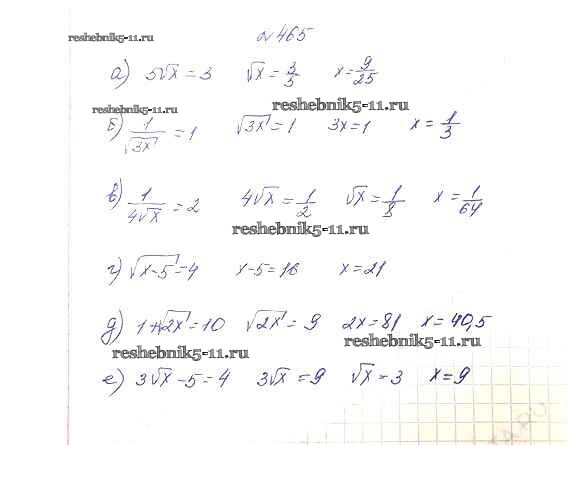 №465
reshebnik5-11.ru
а) 5√x = 3 √x = 3/5 x = 9/25
reshebnik5-11.ru
reshebnik5-11.ru
б) 1/√3x = 1 √3x = 1 3x = 1 x = 1/3
в) 1/4√x = 2 4√x = 1/2 √x = 1/8 x = 1/64
reshebnik5-11.ru
г) √x-5 = 4 x-5 = 16 x = 21
д) 1+√2x = 10 √2x = 9 2x = 81 x = 40,5
reshebnik5-11.ru
reshebnik5-11.ru
е) 3√x - 5 = 4 3√x = 9 √x = 3 x = 9
reshebnik5-11.ru